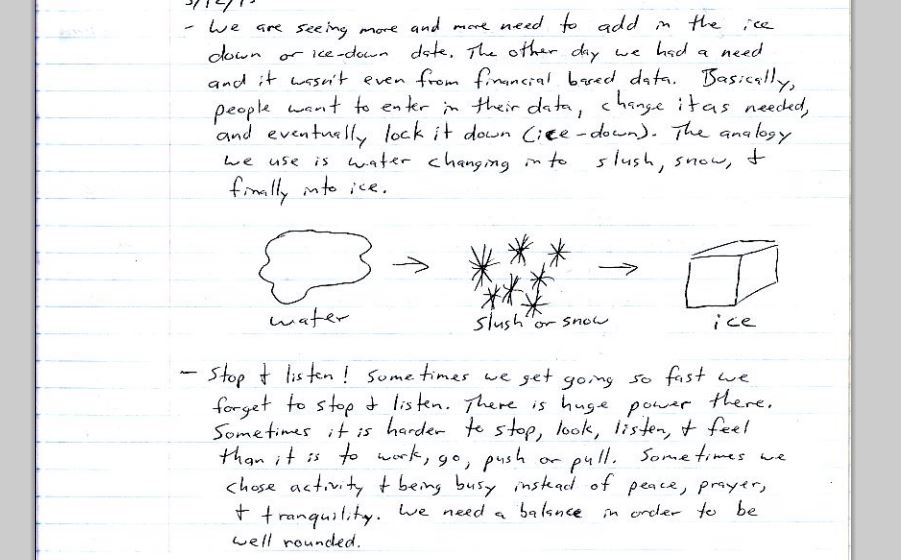 - We are seeing more and more need to add in the ice
down or ice-down date. The other day we had a need
and it wasn't even from financial based data. Basically,
people want to enter in their data, change it as needed,
and eventually lock it down (ice-down). The analogy
we use is water changing into slush, snow, &
finally into ice.
water → slush or snow → ice
- Stop & listen! Sometimes we get going so fast we
forget to stop & listen. There is huge power there.
Sometimes it is harder to stop, look, listen, & feel
than it is to work, go, push or pull. Sometimes we
chose activity & being busy instead of peace, prayer,
& tranquility. We need a balance in order to be
well rounded.